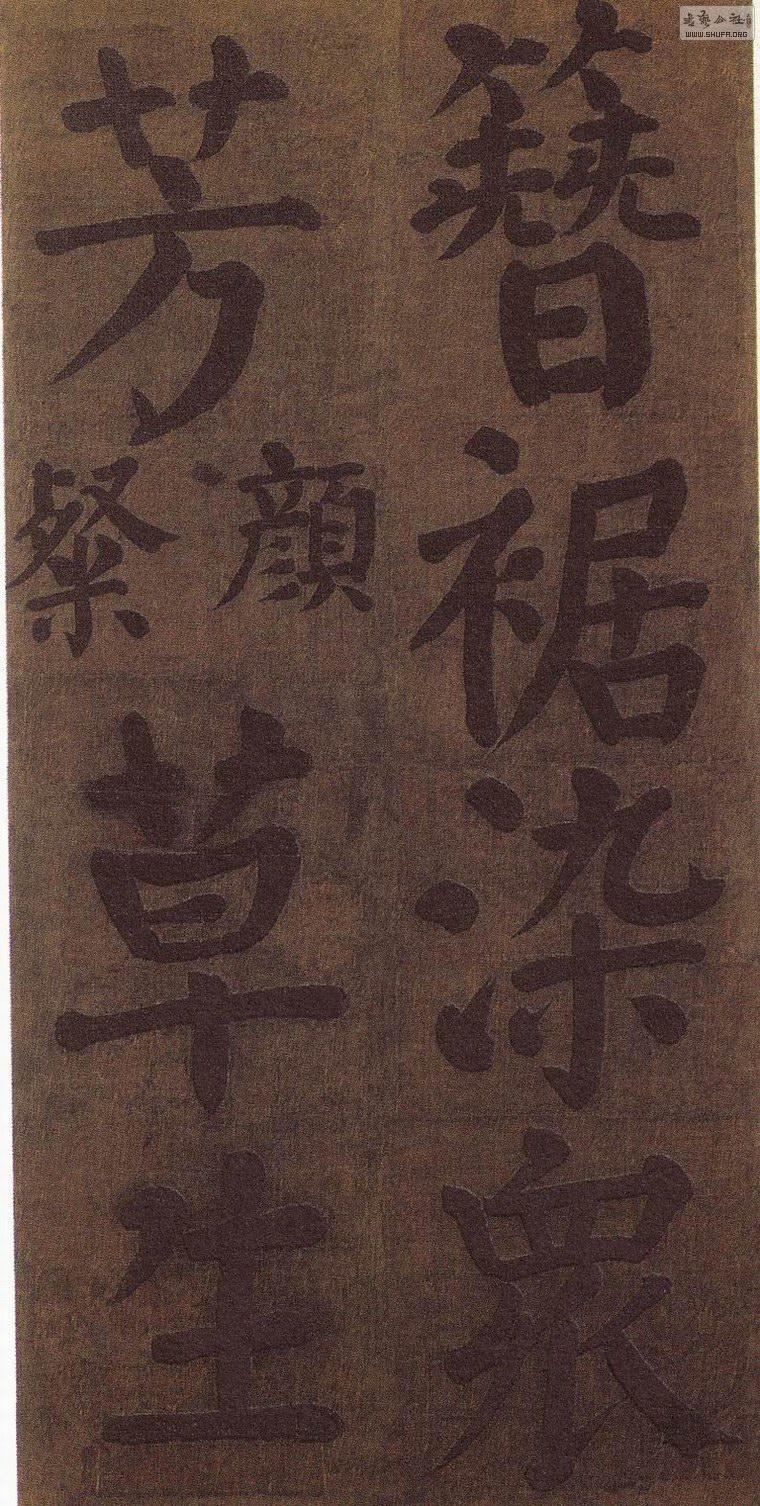 簪裾染眾
芳顏粲草生
書藝公社
WWW.SHUFA.ORG